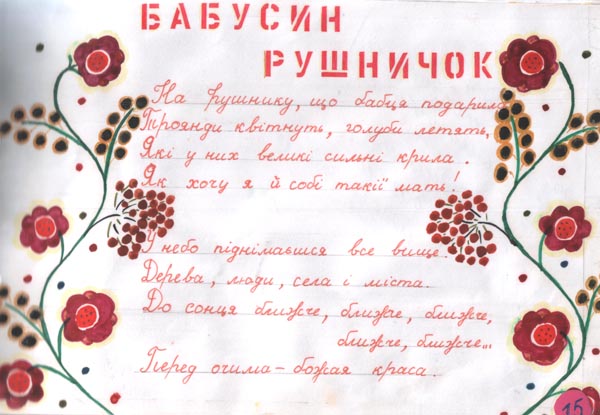 БАБУСИН
РУШНИЧОК
На рушнику, що бабця подарила
Троянди квітнуть, голуби летять,
Які у них великі сильні крила.
Як хочу я й собі такії мать!
У небо піднімаєшся все вище.
Дерева, люди, села і міста.
До сонця ближче, ближче, ближче,
ближче, ближче...
Перед очима - божая краса.
15